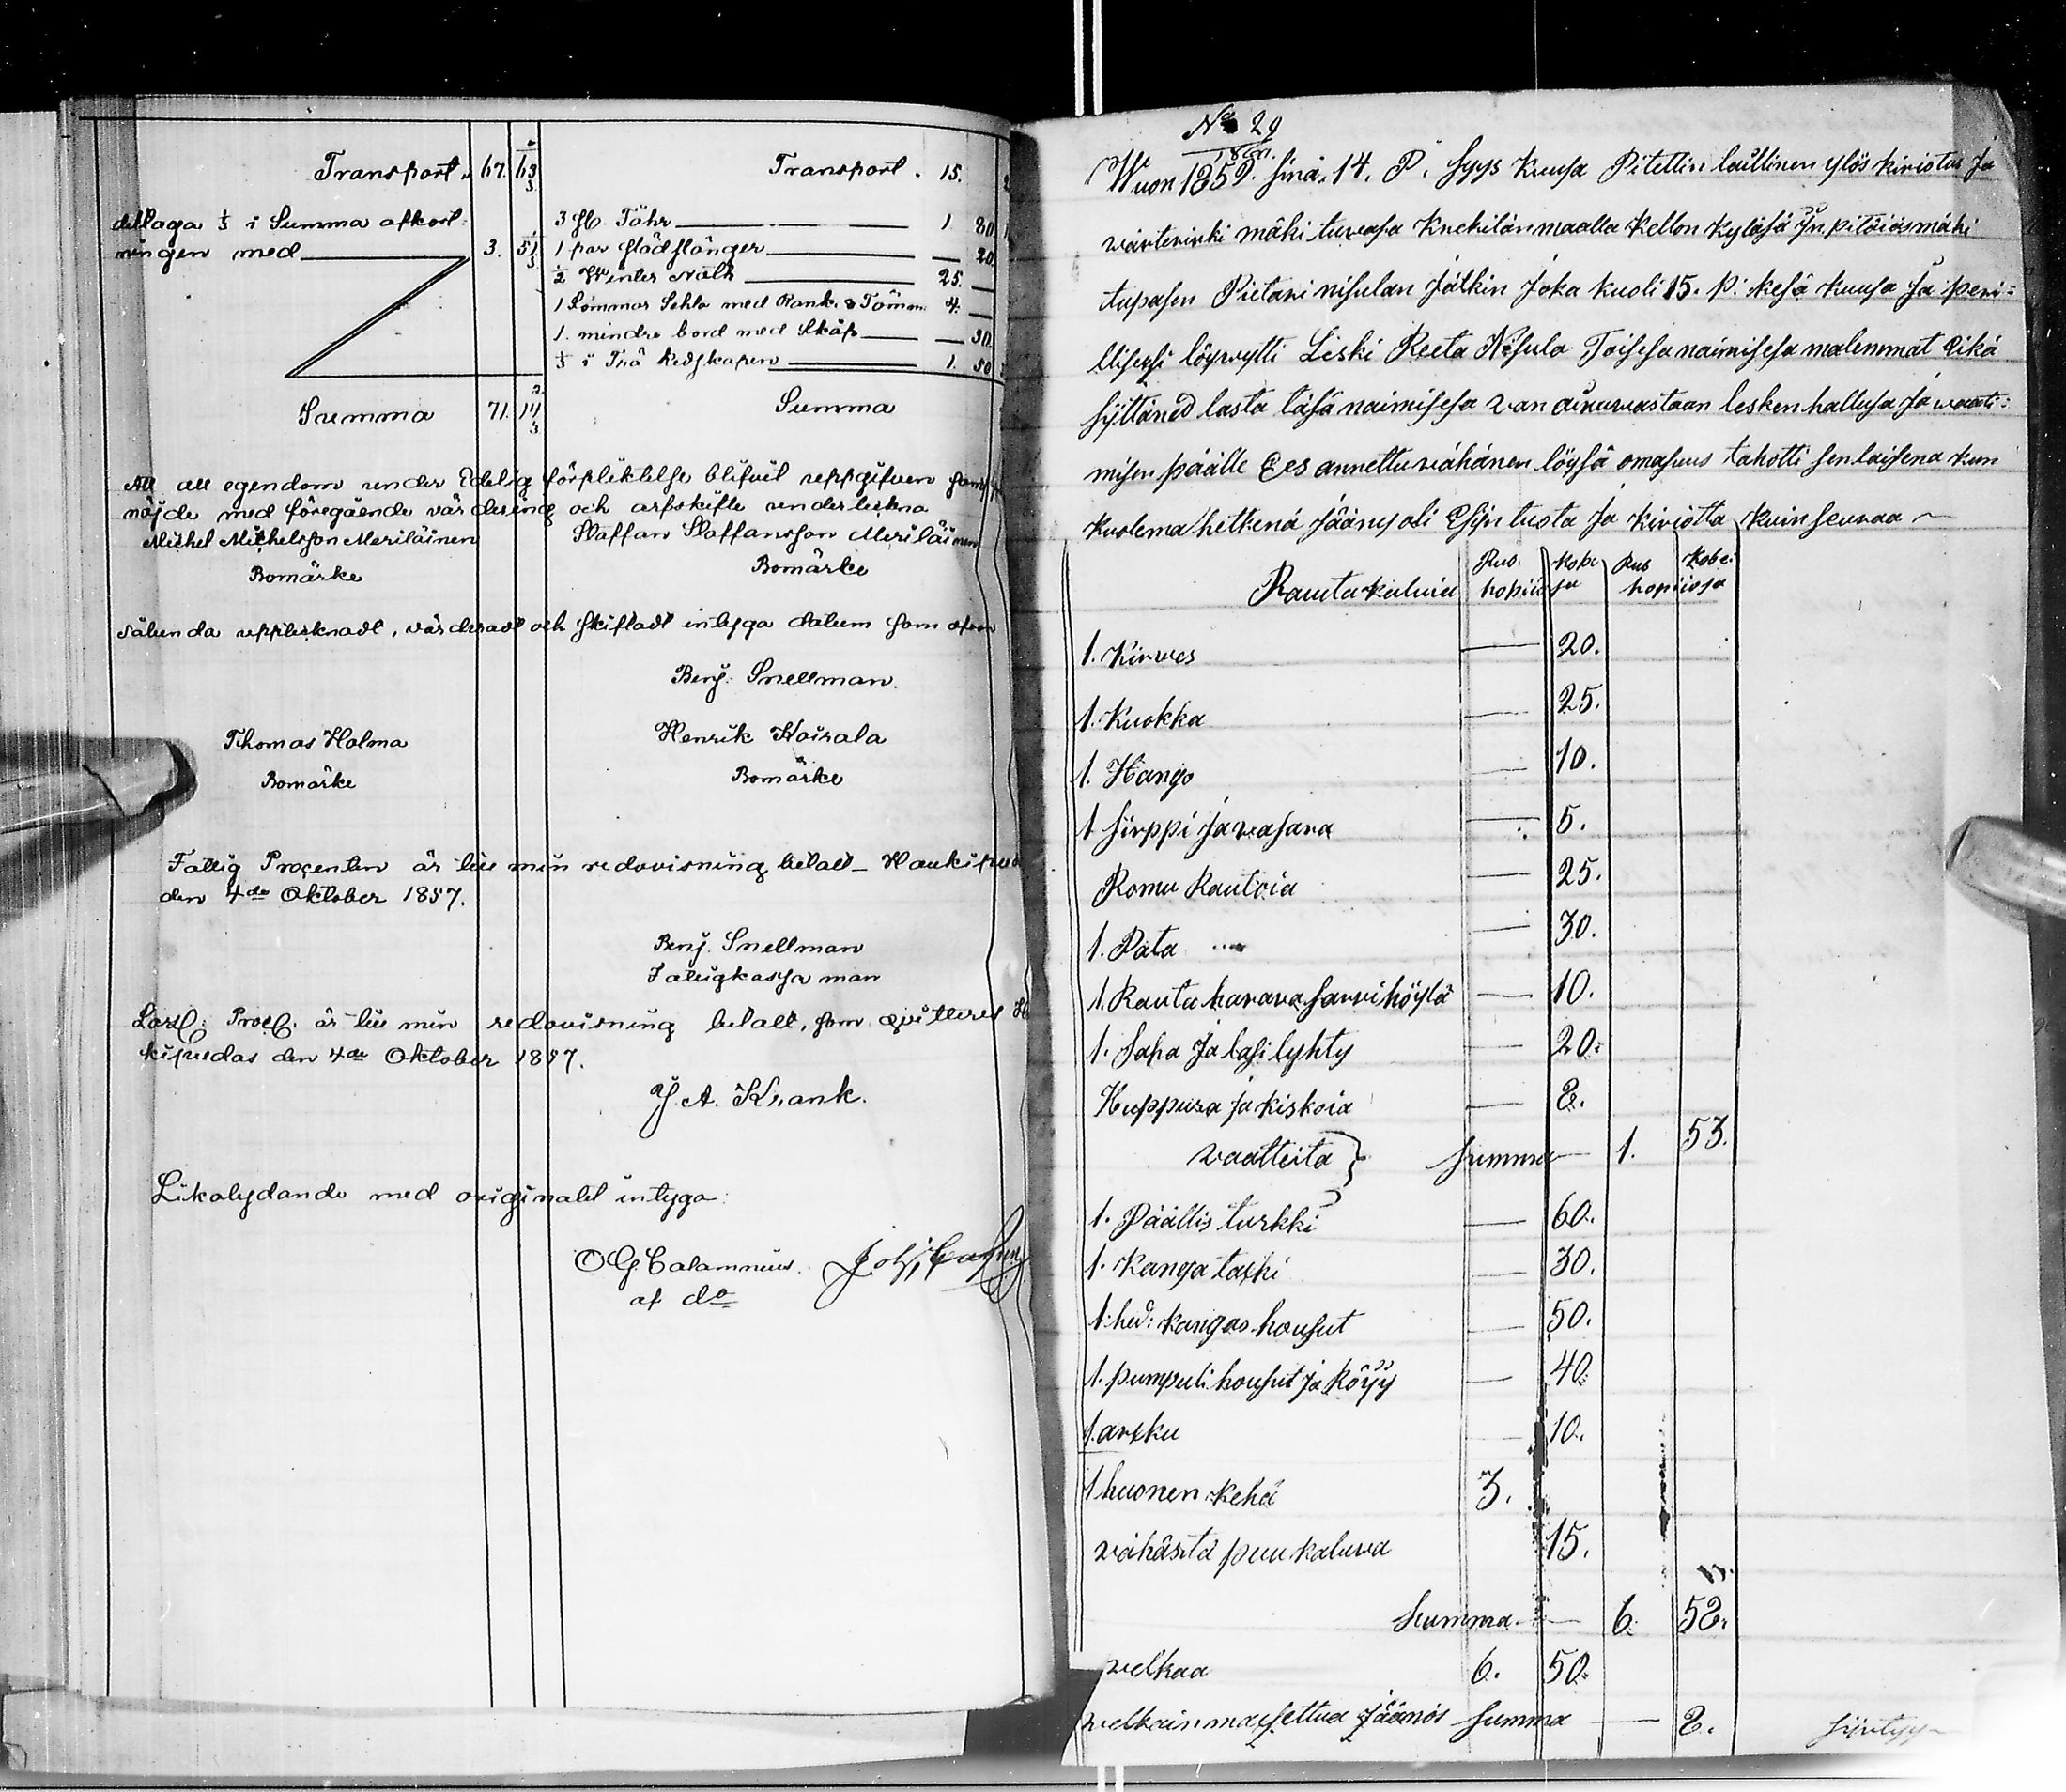 Transport. 67. 63 2/3
deltaga 1/3 i Summa afkort-
ningen med 3. 51 1/3
Summa 71. 14 2/3
Transport. 15.
3 st. Tåhr 1 80
1 par Flädstänger — 20
1/2 Winter Nätt 25. —
1 Sommar Sehla med Rank & Tömm 4. —
1. mindre bord med Skåp — 30.
1/3 i Trä Redskapen 1. 50
Summa
Att all egendom under Edelig förpliktelse blifvit uppgifven samt
nöjde med föregående värdering och arfskifte underteckna
Michel Michelsson Meriläinen Staffan Staffansson Meriläinen
Bomärke Bomärke
Sålunda upptecknadt, värderadt och skiftadt intyga datum som ofvan
Benj. Snellman.
Thomas Holma Henrik Koirala
Bomärke Bomärke
Fattig Procenten är till min redovisning betald – Haukipud
den 4de Oktober 1857.
Benj. Snellman
Fattigkassa man
Proc. är till min redovisning betalt, som qvitteras
kipudas den 4de Oktober 1857.
J. A. Krank.
Likalydande med originalet intyga:
O G Calamnius. Joh.
af do
No 29
Wuon 1859. sinä. 14. P. Syys kuusa Pitettin laillinen ylös kirioitus Ja
wärterinki mäki tuwasa Knekilänmaalla Kellon kyläsä In pitäiäsmäki
tupasen Pietari nisulan Jälkin Joka kuoli 15. p. kesä kuusa Ja peri-
llisexsi löywytti Leski Reeta Nisula Toisesa naimisesa malemmat Eikä
syttäned lasta täsä naimisesa van ainuwastaan lesken hallusa Ja waati-
misen päälle Ees annettu wähänen löysä omasuus tahotti senlaisena kun
kuolema hetkenä Jäänyt oli Esijn tuota Ja kiriotta kuin seuraa ~
Rauta kaluia Rub. Kope Rub Kope:
hopiiosa hopiiosa
1. Kirwes — 20.
1. Kuokka — 25.
1. Hango — 10.
1 Sirppi Ja wasara — 5.
Romu Rautoia — 25.
1. Pata — 30.
1. Rauta harava sarvi höylä — 10.
1. Saha Ja lasi lyhty — 20.
Huppura Ja kiskoia — 8.
waatteita } Summa — 1. 53.
1. Päällis turkki — 60.
1. Kanga takki — 30.
1. hed: kangas housut — 50.
1. pumpuli housut Ja Röyy — 40.
1. arkku — 10.
1 huonen kehä 3.
vähäsitä puu kaluwa 15.
Summa — 6. 58.
velkaa 6. 50.
velkain maxettua Jäänös Summa — 8.
sijrtyy